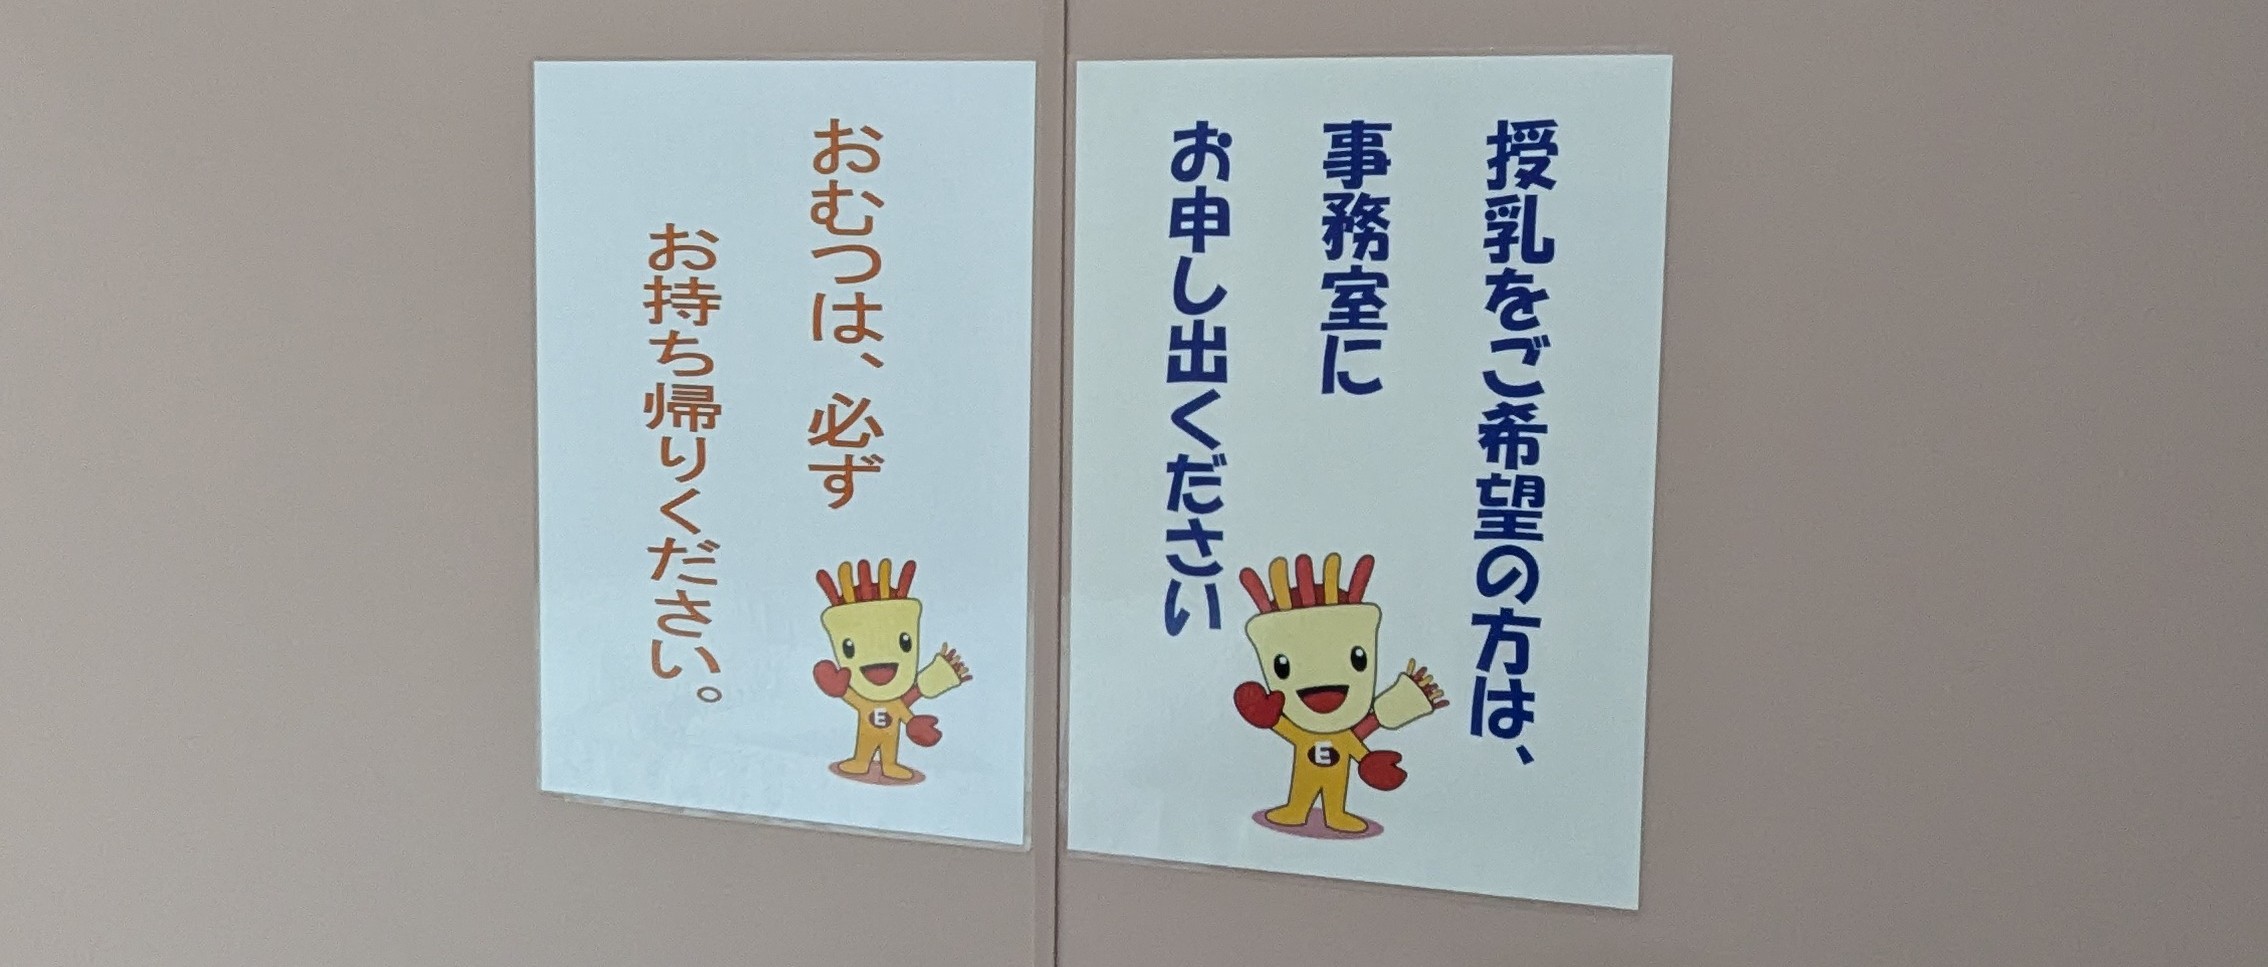 授乳をご希望の方は、
事務室に
お申し出ください
E
おむつは、必ず
お持ち帰りください。
E